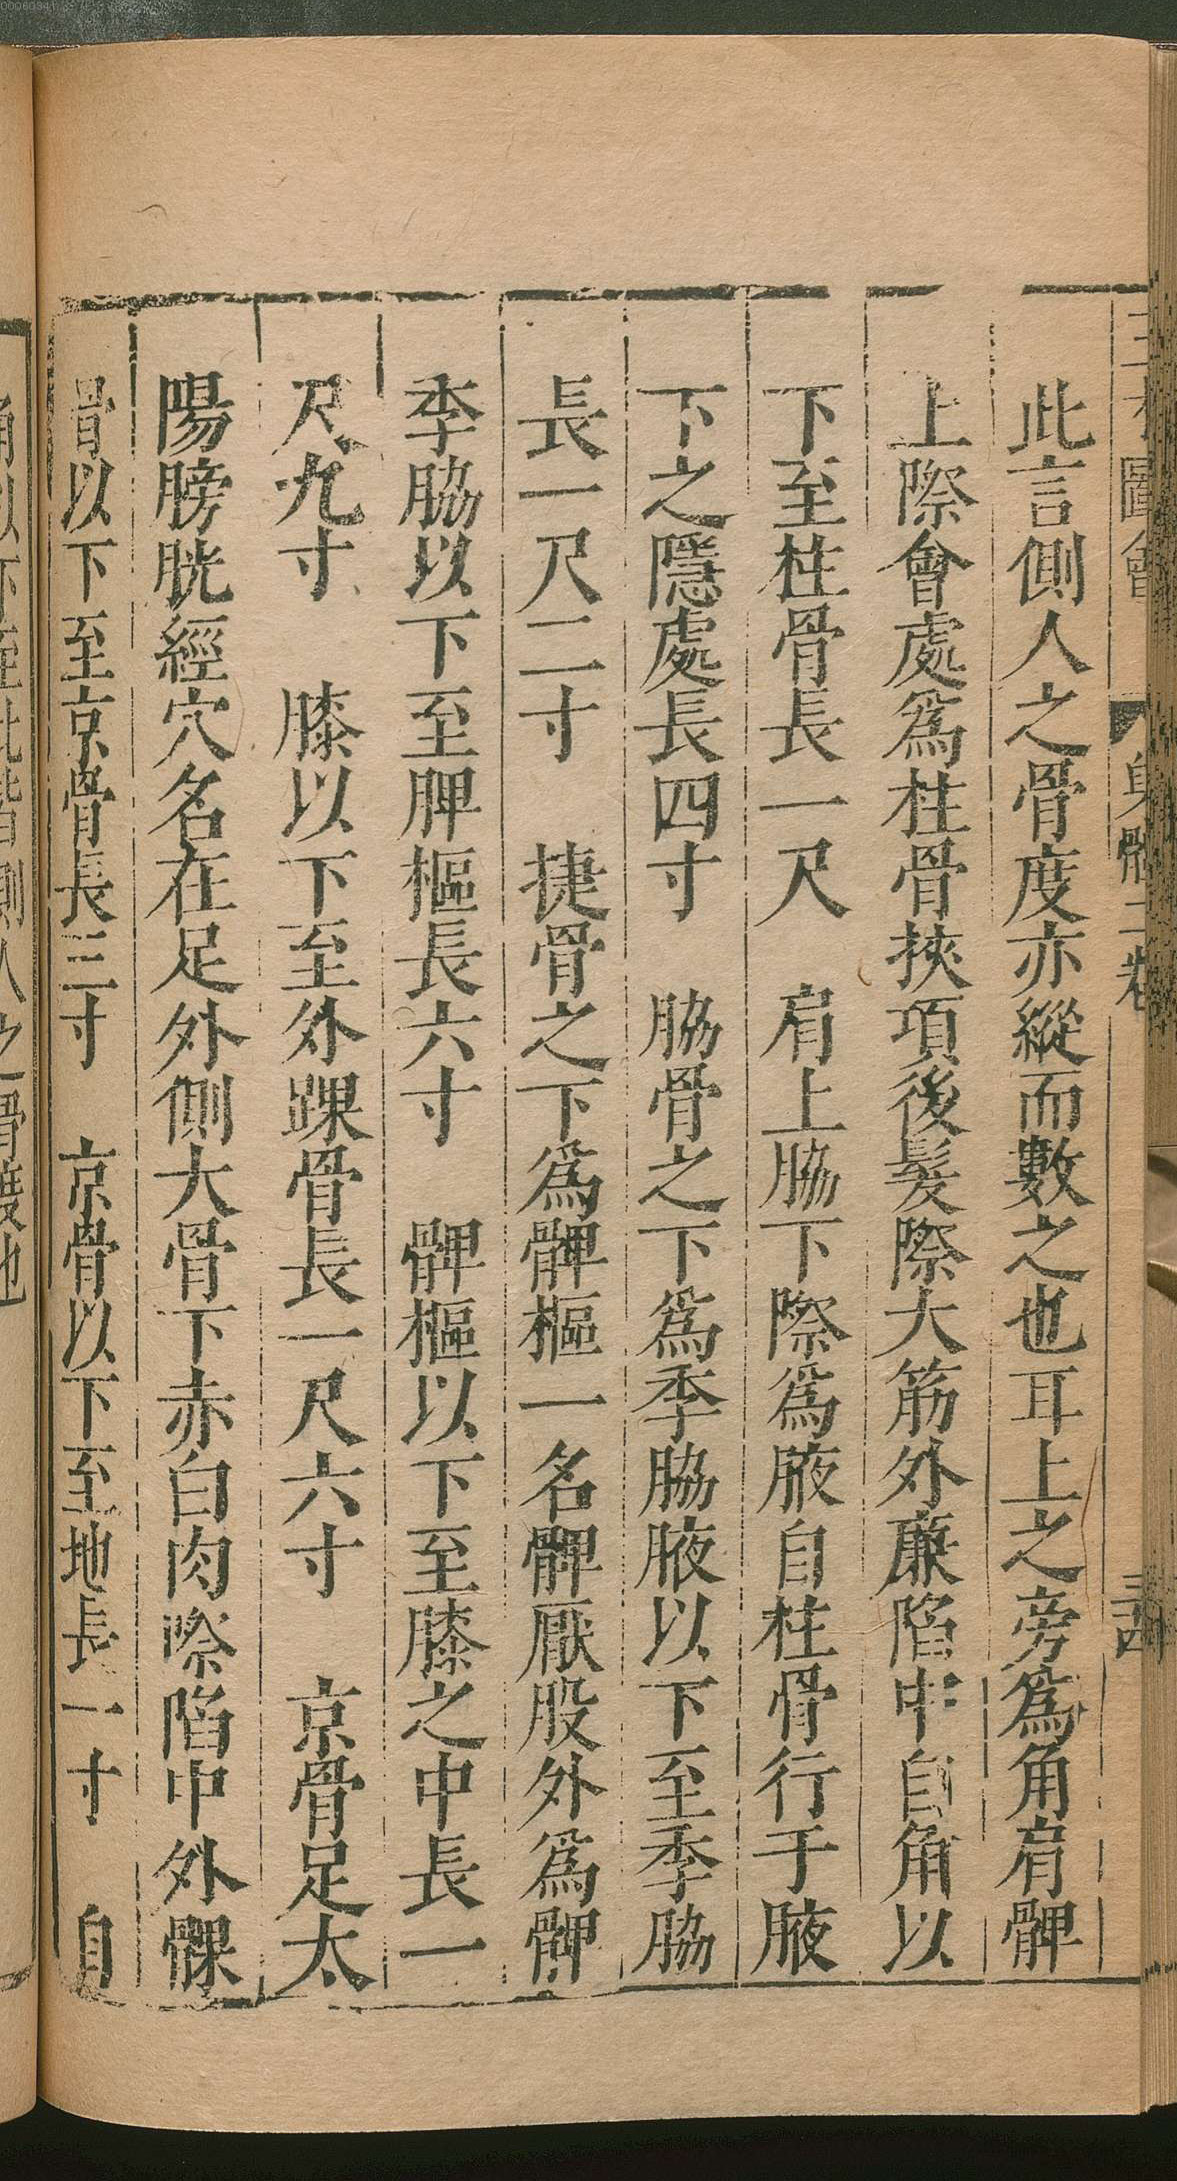 三才圖會 身體二卷 三四
此言側人之骨度亦縱而數之也耳上之旁爲角肩髀
上際會處爲柱骨挾項後髮際大筋外廉陷中自角以
下至柱骨長一尺 肩上脇下際爲腋自柱骨行于腋
下之隱處長四寸 脇骨之下爲季脇腋以下至季脇
長一尺二寸 捷骨之下爲髀樞一名髀厭股外爲髀
季脇以下至脾樞長六寸 髀樞以下至膝之中長一
尺九寸 膝以下至外踝骨長一尺六寸 京骨足太
陽膀胱經穴名在足外側大骨下赤白肉際陷中外髁
骨以下至京骨長三寸 京骨以下至地長一寸 自
角以下至此皆側人之骨度也